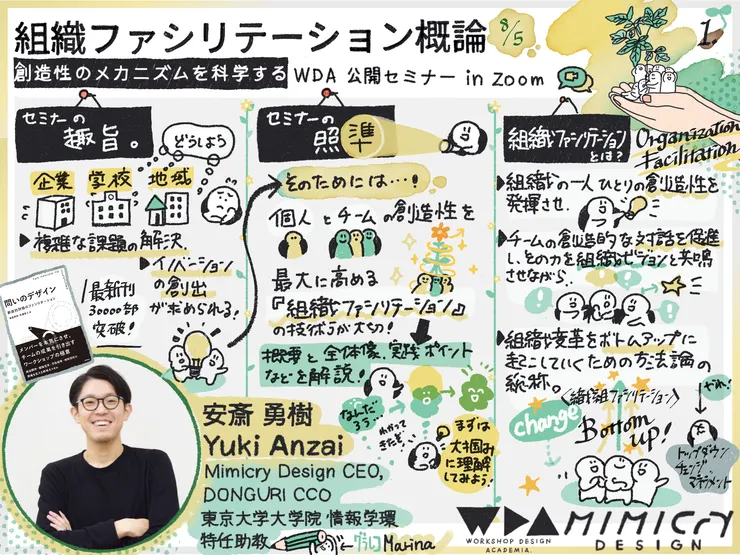 組織ファシリテーション概論
8/5
1.
創造性のメカニズムを科学する WDA 公開セミナー in Zoom
セミナーの
趣旨。
どうしよう
企業 学校 地域
▶複雑な課題の解決、
▶イノベーション
の創出
が求められる!
最新刊
30000部
突破!
問いのデザイン
セミナーの
照準
そのためには…!
個人とチームの創造性を
最大に高める
『組織ファシリテーション』
の技(ポ)が大切!
概要と全体像、実践ポイント
などを解説!
なんだ
ろう…
わかって
きたぞ
まずは
大枠
に理解
してみよう!
組織ファシリテーション
とは?
Organization
Facilitation
▶組織の一人ひとりの創造性を
発揮させ、
▶チームの創造的な対話を促進
し、その力を組織ビジョンと共鳴
させながら、
▶組織変革をボトムアップに
起こしていくための方法論の
総称。
<組織ファシリテーション>
change
Bottom
up!
やれ!
トップダウン
チェンジ
マネジメント
安斎 勇樹
Yuki Anzai
Mimicry Design CEO,
DONGURI CCO
東京大学大学院 情報学環
特任助教
グラレコ Marina
WDA
WORKSHOP DESIGN
ACADEMIA.
MIMICRY
DESIGN